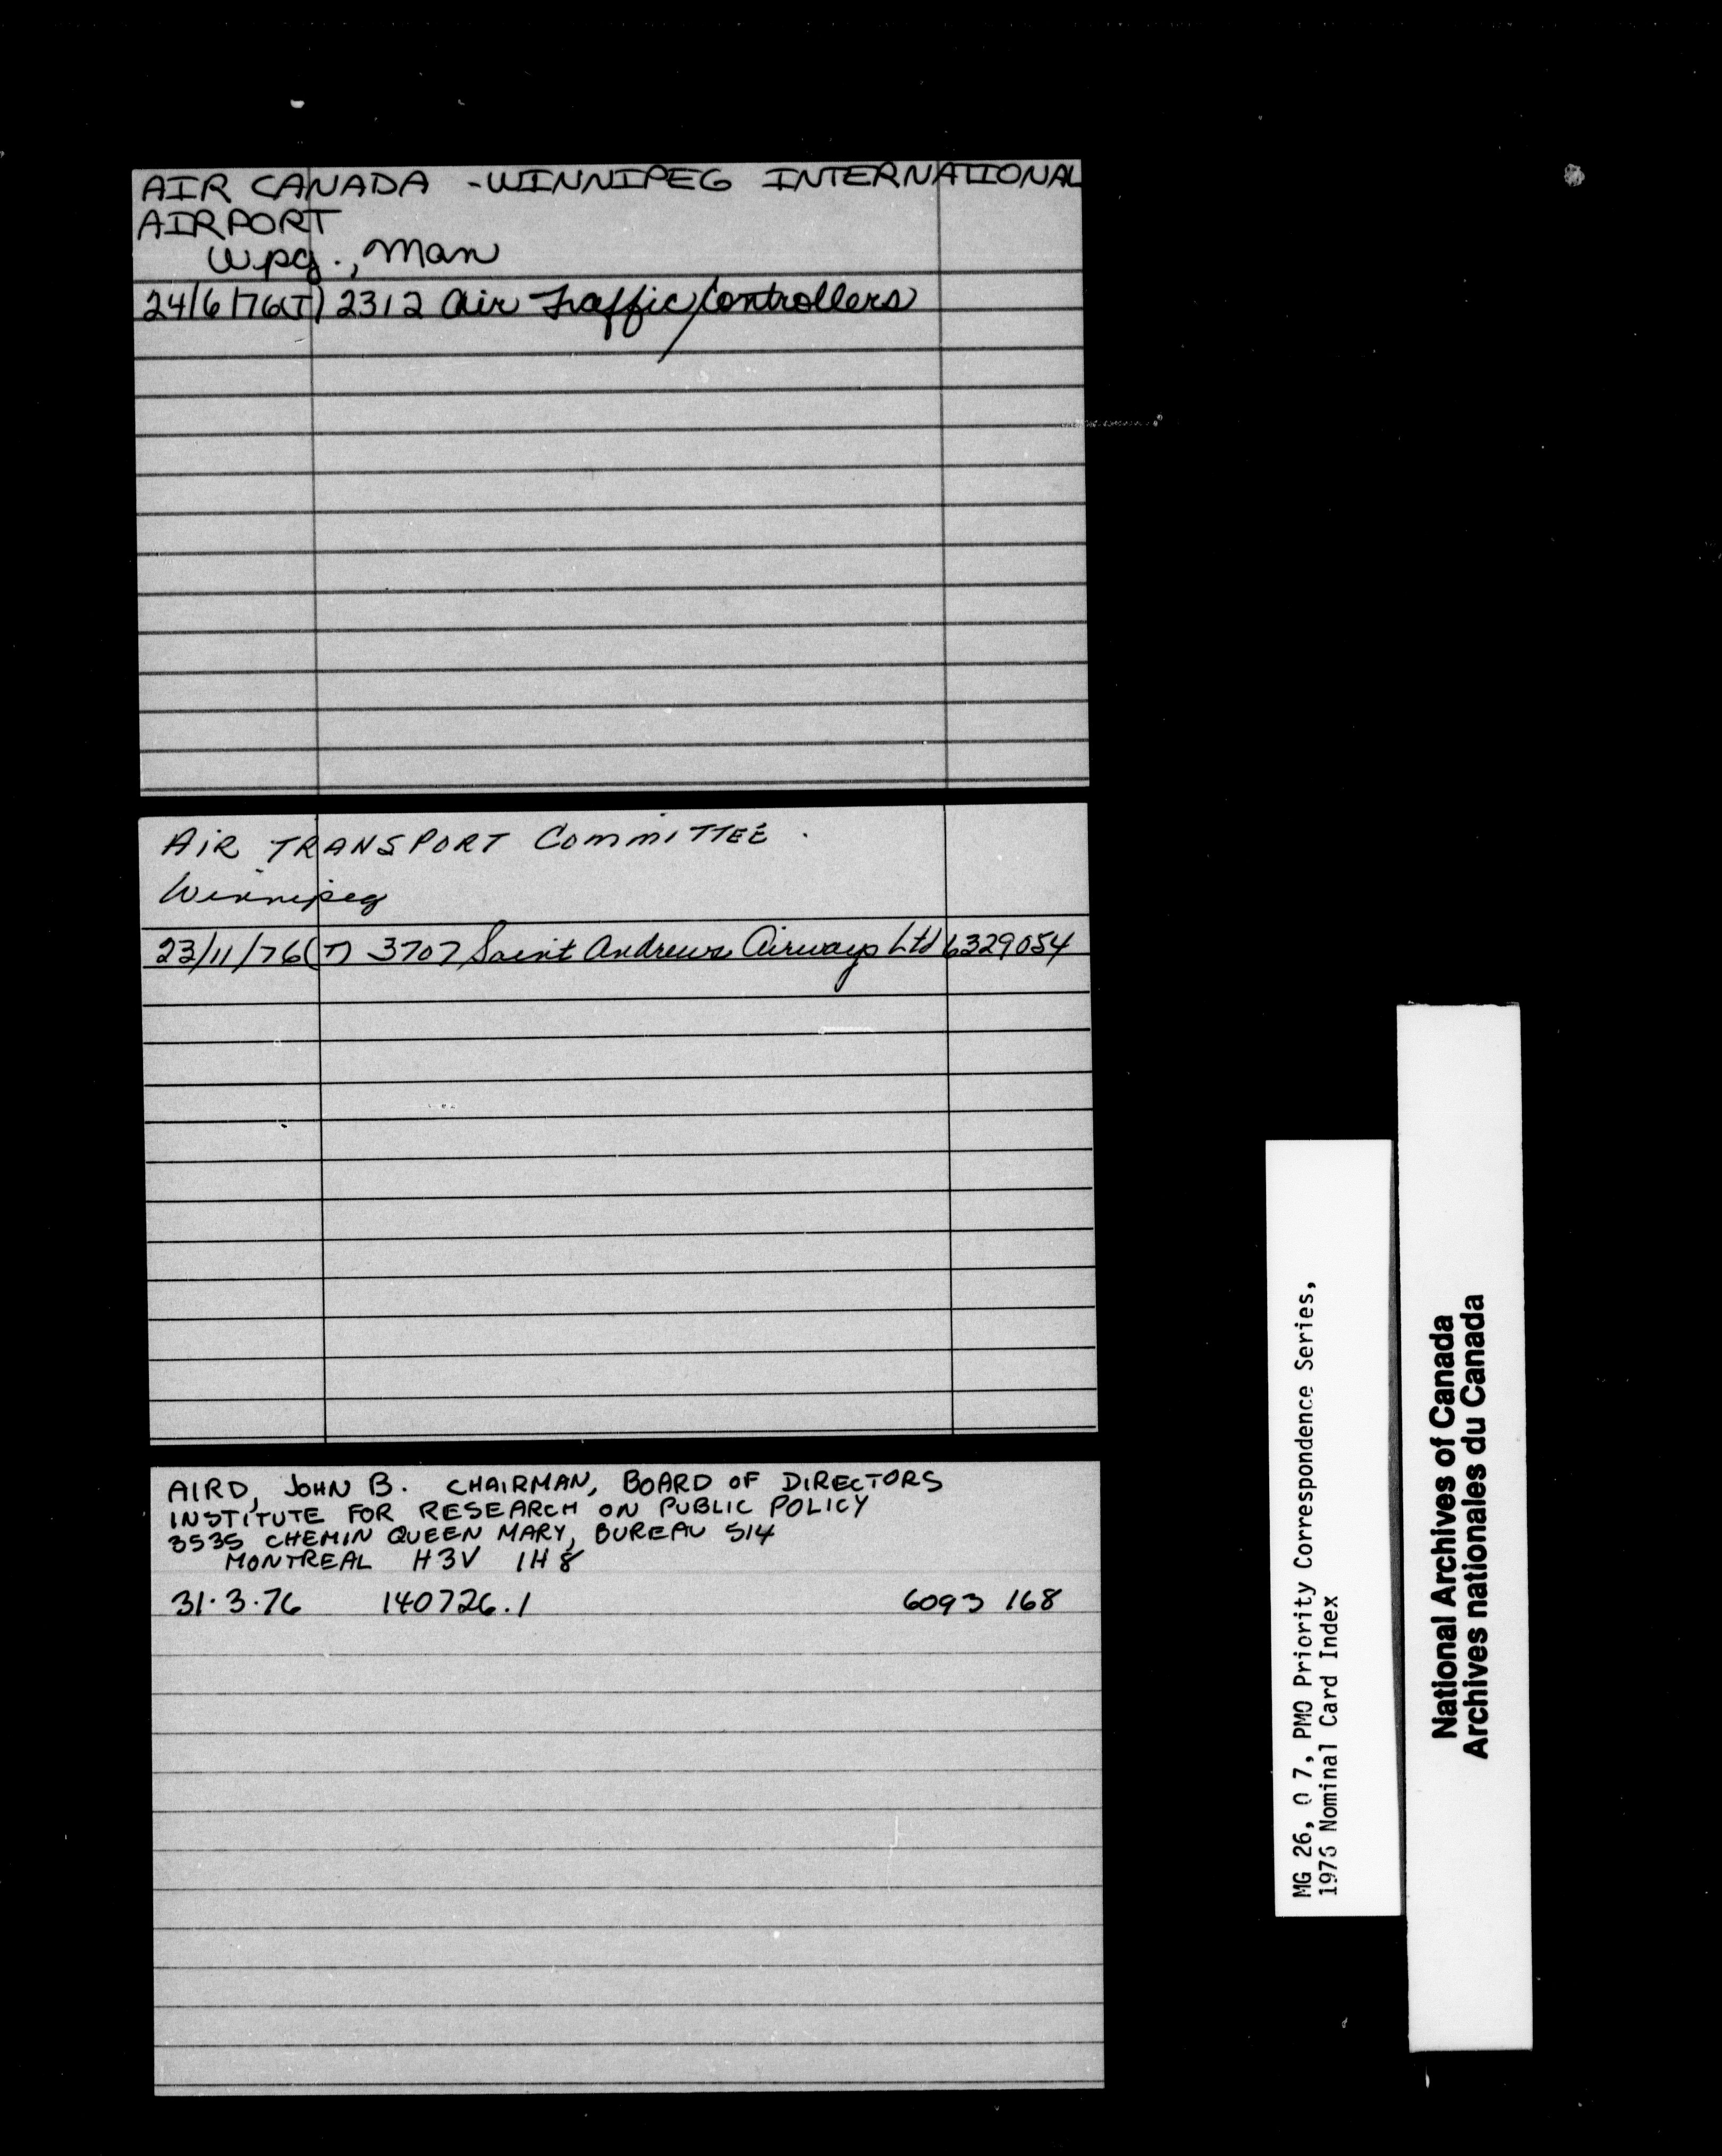 AIR CANADA - WINNIPEG INTERNATIONAL
AIRPORT
Wpg., Man
24/6/76(T) 2312 Air Traffic Controllers
AIR TRANSPORT COMMITTEE.
Winnipeg
23/11/76(T) 3707 Saint Andrews Airways Ltd 6329054
AIRD, JOHN B. CHAIRMAN, BOARD OF DIRECTORS
INSTITUTE FOR RESEARCH ON PUBLIC POLICY
3535 CHEMIN QUEEN MARY, BUREAU 514
MONTREAL H3V 1H8
31.3.76 140726.1 6093 168
MG 26, O 7, PMO Priority Correspondence Series,
1976 Nominal Card Index
National Archives of Canada
Archives nationales du Canada